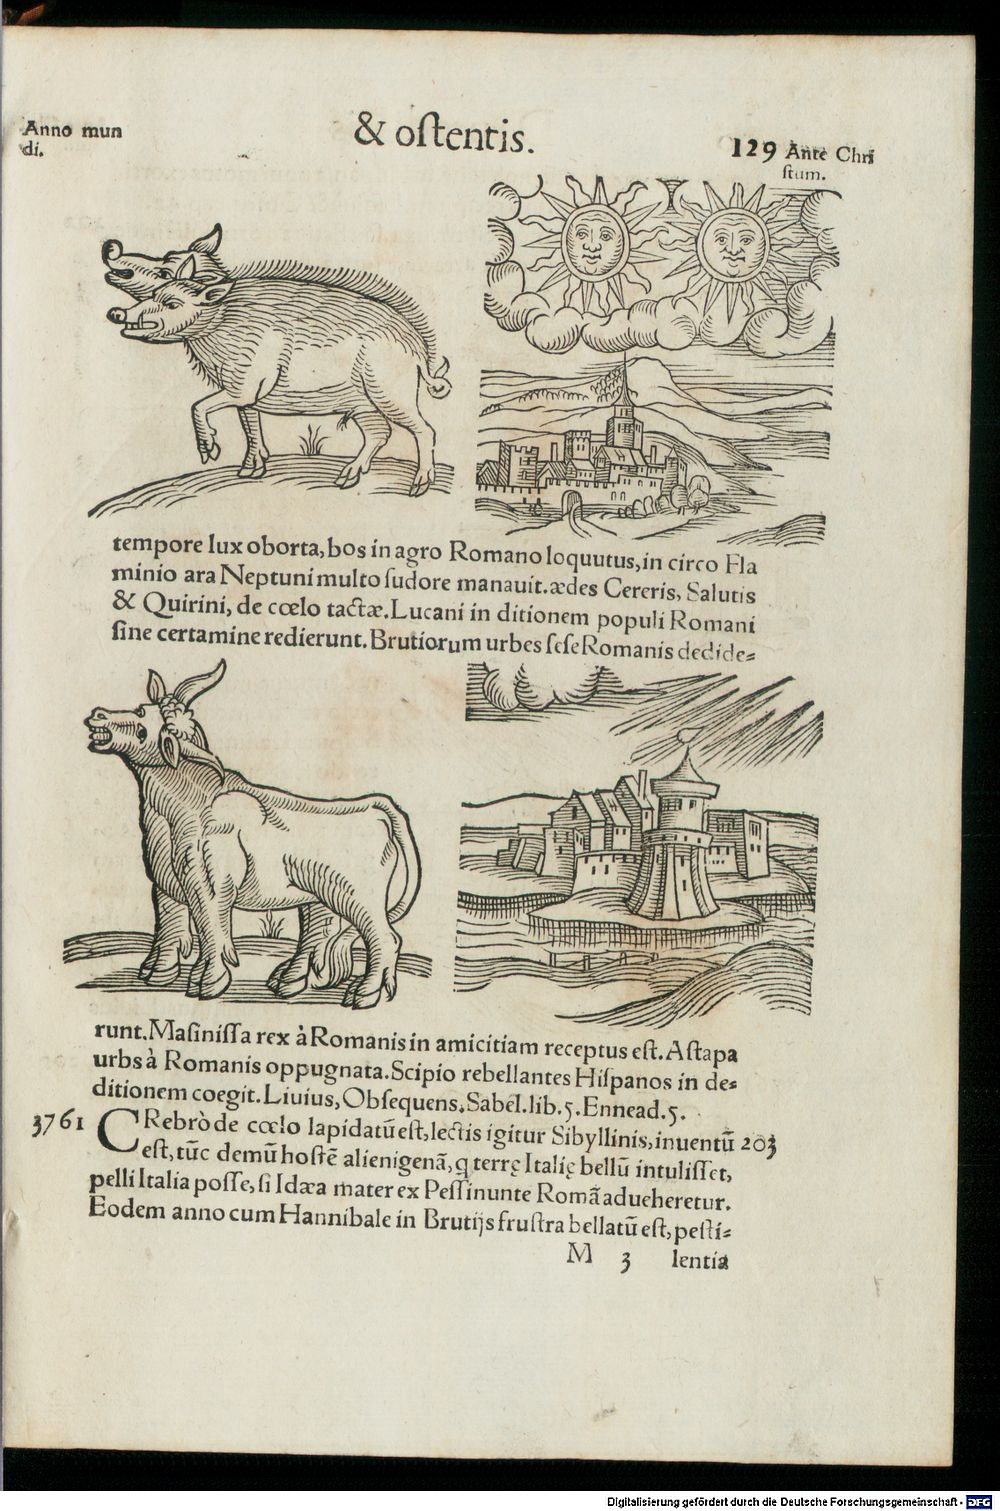 Anno mun
di.
& oſtentis.
129 Ante Chri
ſtum.
tempore lux oborta, bos in agro Romano loquutus, in circo Fla
minio ara Neptuni multo ſudore manauit. ædes Cereris, Salutis
& Quirini, de cœlo tactæ. Lucani in ditionem populi Romani
ſine certamine redierunt. Brutiorum urbes ſeſe Romanis dedide⸗
runt. Maſiniſſa rex à Romanis in amicitiam receptus eſt. Aſtapa
urbs à Romanis oppugnata. Scipio rebellantes Hiſpanos in de⸗
ditionem coegit. Liuius, Obſequens, Sabel. lib. 5. Ennead. 5.
3761 CRebrò de cœlo lapidatũ eſt, lectis igitur Sibyllinis, inuentũ 203
eſt, tũc demũ hoſtẽ alienigenã, q terrę Italię bellũ intuliſſet,
pelli Italia poſſe, ſi Idæa mater ex Peſſinunte Romã adueheretur.
Eodem anno cum Hannibale in Brutijs fruſtra bellatũ eſt, peſti⸗
M 3 lentia
Digitalisierung gefördert durch die Deutsche Forschungsgemeinschaft - DFG